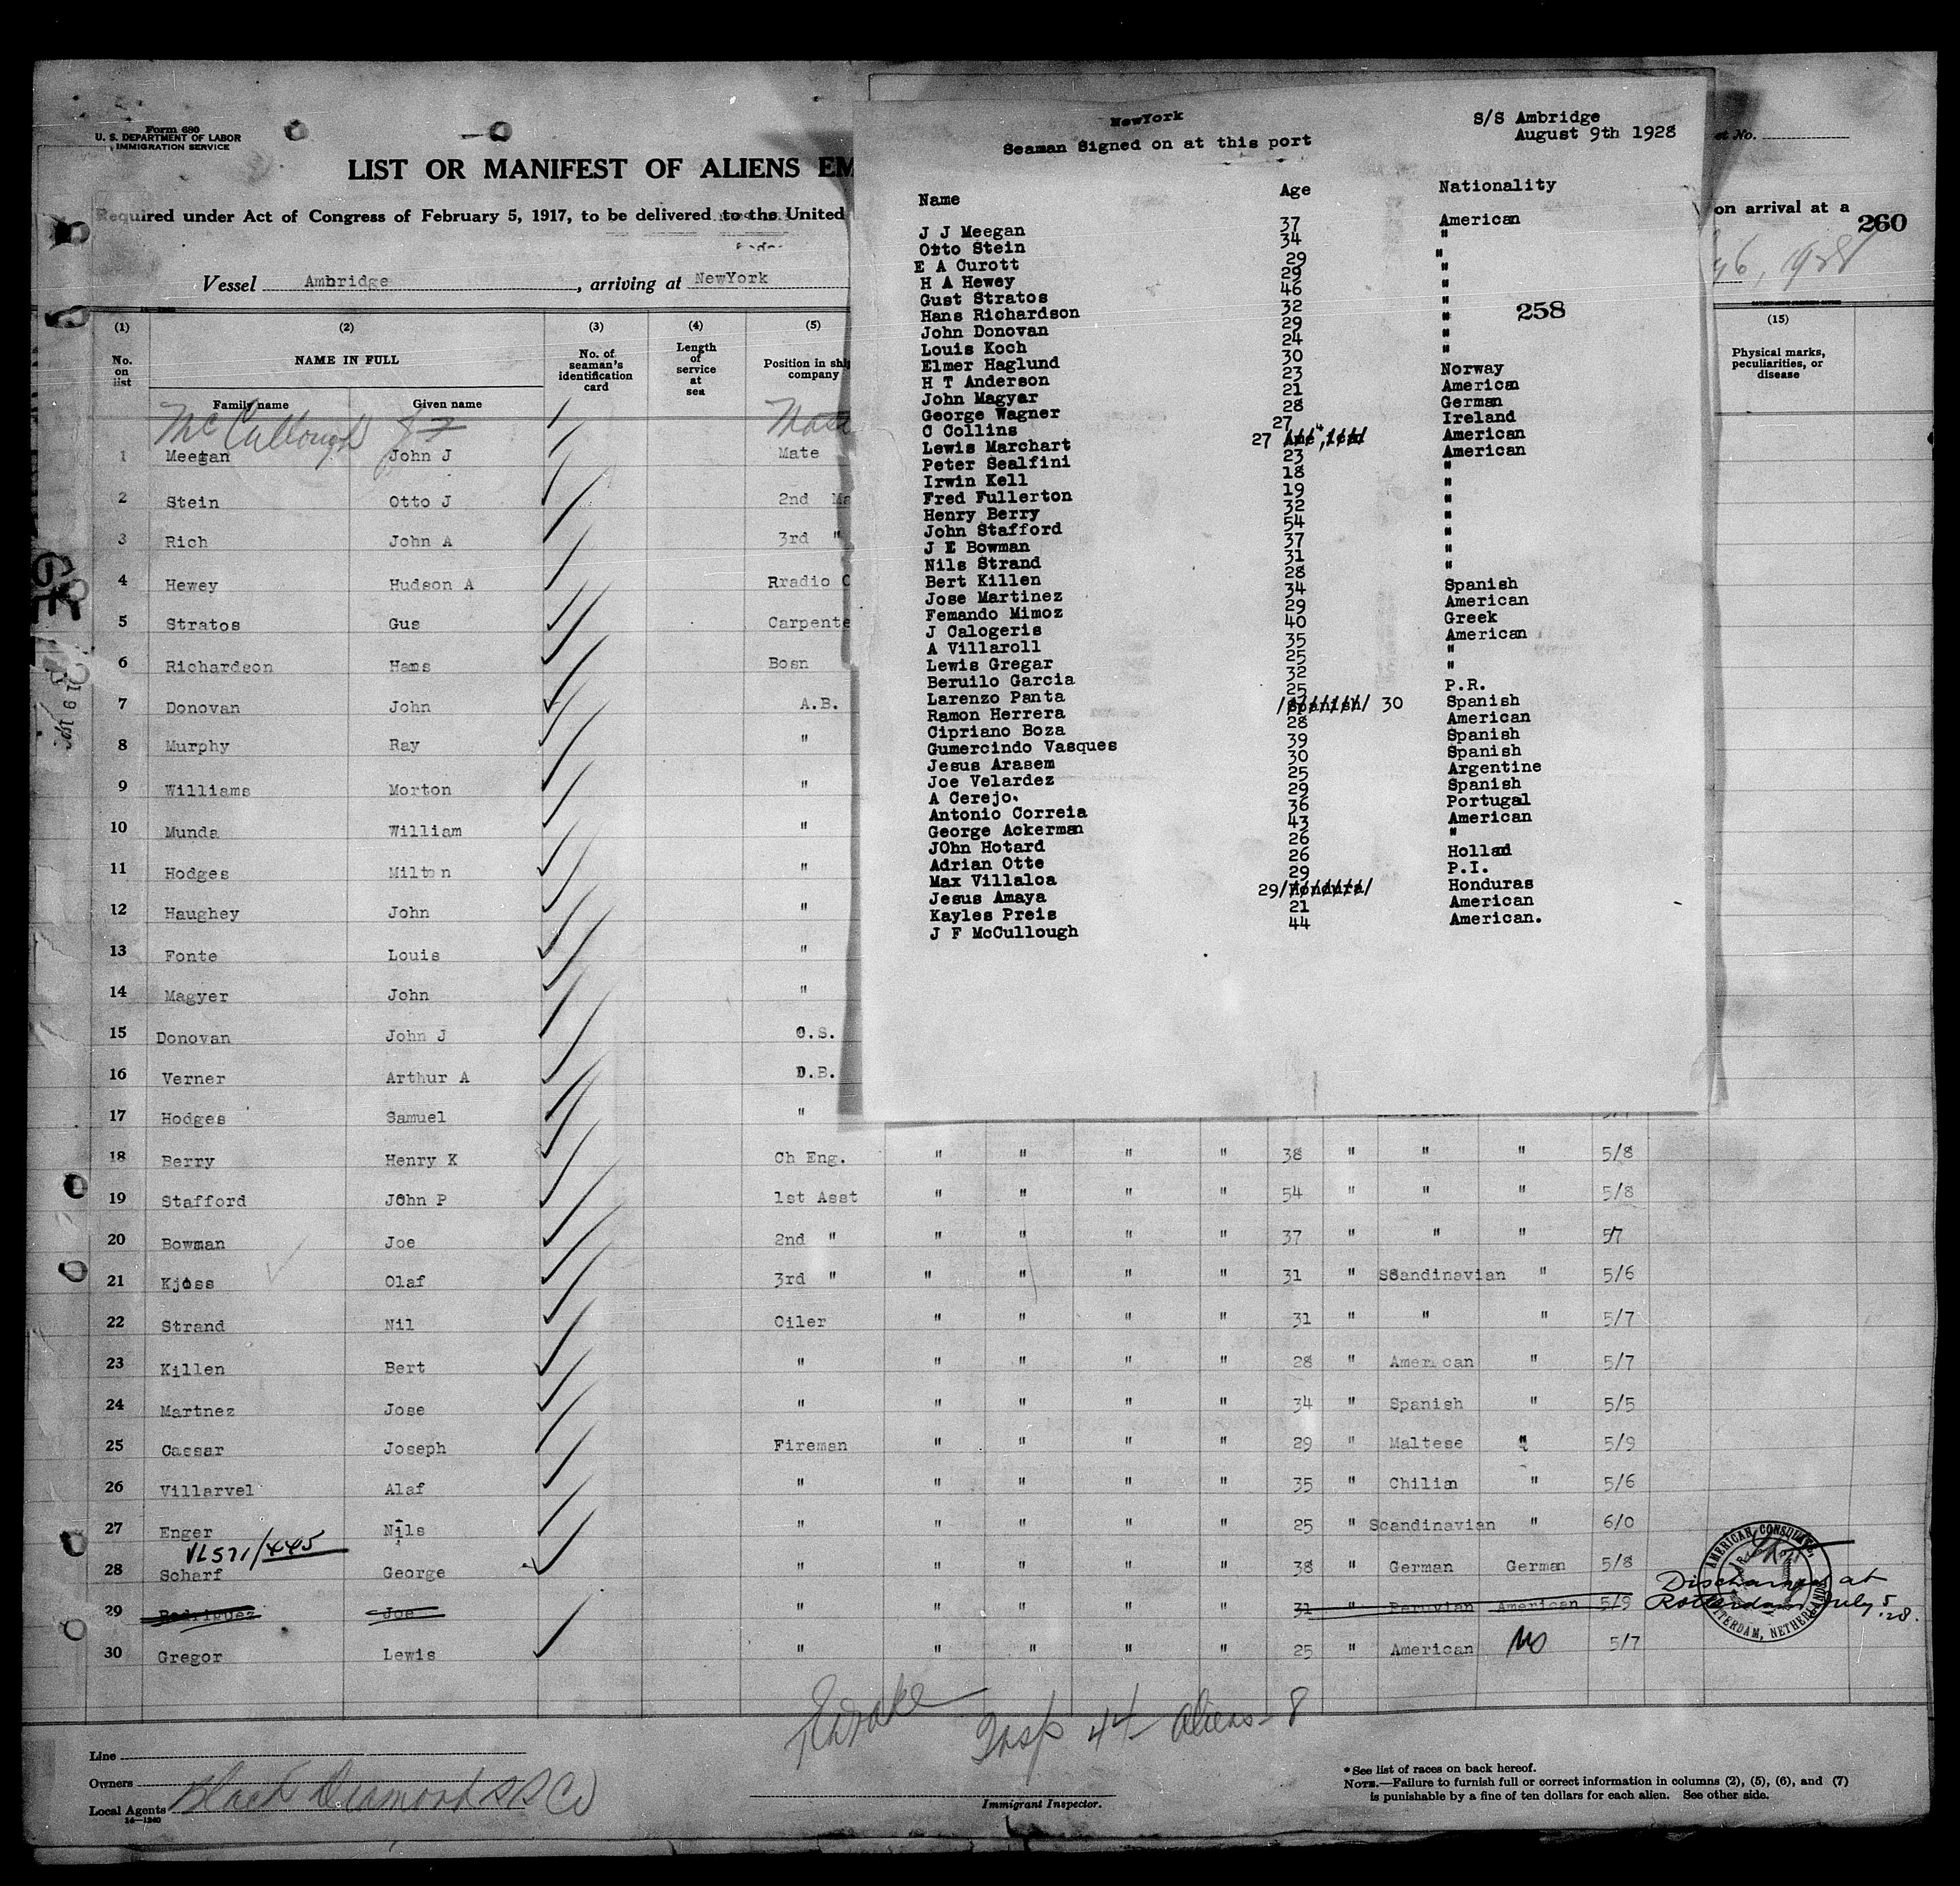 Form 680
U. S. DEPARTMENT OF LABOR
IMMIGRATION SERVICE
LIST OR MANIFEST OF ALIENS EM
Required under Act of Congress of February 5, 1917, to be delivered to the United
on arrival at a
260
et No.
Vessel Ambridge, arriving at NewYork
6, 1928
NewYork
S/S Ambridge
Seaman Signed on at this port
August 9th 1928
Name Age Nationality
J J Meegan 37 American
Otto Stein 34 "
E A Curott 29 "
H A Hewey 29 "
Gust Stratos 46 "
Hans Richardson 32 "
John Donovan 29 "
Louis Koch 24 "
Elmer Haglund 30 "
H T Anderson 23 Norway
John Magyar 21 American
George Wagner 28 German
C Collins 27 Ireland
Lewis Marchart 27 American
Peter Sealfini 23 American
Irwin Kell 18 "
Fred Fullerton 19 "
Henry Berry 32 "
John Stafford 54 "
J E Bowman 37 "
Nils Strand 31 "
Bert Killen 28 "
Jose Martinez 34 Spanish
Femando Mimoz 29 American
J Calogeris 40 Greek
A Villaroll 35 American
Lewis Gregar 25 "
Beruilo Garcia 32 "
Larenzo Panta 25 P.R.
Ramon Herrera /Spanish/ 30 Spanish
Cipriano Boza 28 American
Gumercindo Vasques 39 Spanish
Jesus Arasem 30 Spanish
Joe Velardez 25 Argentine
A Cerejo. 29 Spanish
Antonio Correia 36 Portugal
George Ackerman 43 American
JOhn Hotard 26 "
Adrian Otte 26 Holland
Max Villaloa 29 P.I.
Jesus Amaya 29/Hondura/ Honduras
Kayles Preis 21 American
J F McCullough 44 American.
258
(1) (2) (3) (4) (5) (15)
No. on list
NAME IN FULL
No. of seaman's identification card
Length of service at sea
Position in ship company
Physical marks, peculiarities, or disease
Family name Given name
McCullough J F Mast
1 Meegan John J Mate
2 Stein Otto J 2nd Ma
3 Rich John A 3rd "
4 Hewey Hudson A Rradio O
5 Stratos Gus Carpente
6 Richardson Hans Bosn
7 Donovan John A.B.
8 Murphy Ray "
9 Williams Morton "
10 Munda William "
11 Hodges Milton "
12 Haughey John "
13 Fonte Louis "
14 Magyer John "
15 Donovan John J O.S.
16 Verner Arthur A D.B.
17 Hodges Samuel "
18 Berry Henry K Ch Eng. " " " " 38 " " " 5/8
19 Stafford JOhn P 1st Asst " " " " 54 " " " 5/8
20 Bowman Joe 2nd " " " " " 37 " " " 5/7
21 Kjoss Olaf 3rd " " " " " 31 " Scandinavian " 5/6
22 Strand Nil Oiler " " " " 31 " " " 5/7
23 Killen Bert " " " " " 28 " American " 5/7
24 Martnez Jose " " " " " 34 " Spanish " 5/5
25 Caesar Joseph Fireman " " " " 29 " Maltese " 5/9
26 Villarvel Alaf " " " " " 35 " Chilian " 5/6
27 Enger Nils " " " " " 25 " Scandinavian " 6/0
VL571/445
28 Scharf George " " " " " 38 " German German 5/8
29 Rodriguez Joe " " " " " 31 " Peruvian American 5/9 Discharged at
Rotterdam July 5 '28.
30 Gregor Lewis " " " " " 25 " American US 5/7
AMERICAN CONSULATE
ROTTERDAM, NETHERLANDS
Insp 44 Aliens - 8
Line
Owners
Local Agents Black Diamond SS Co
16—1240
Immigrant Inspector.
*See list of races on back hereof.
NOTE.—Failure to furnish full or correct information in columns (2), (5), (6), and (7)
is punishable by a fine of ten dollars for each alien. See other side.